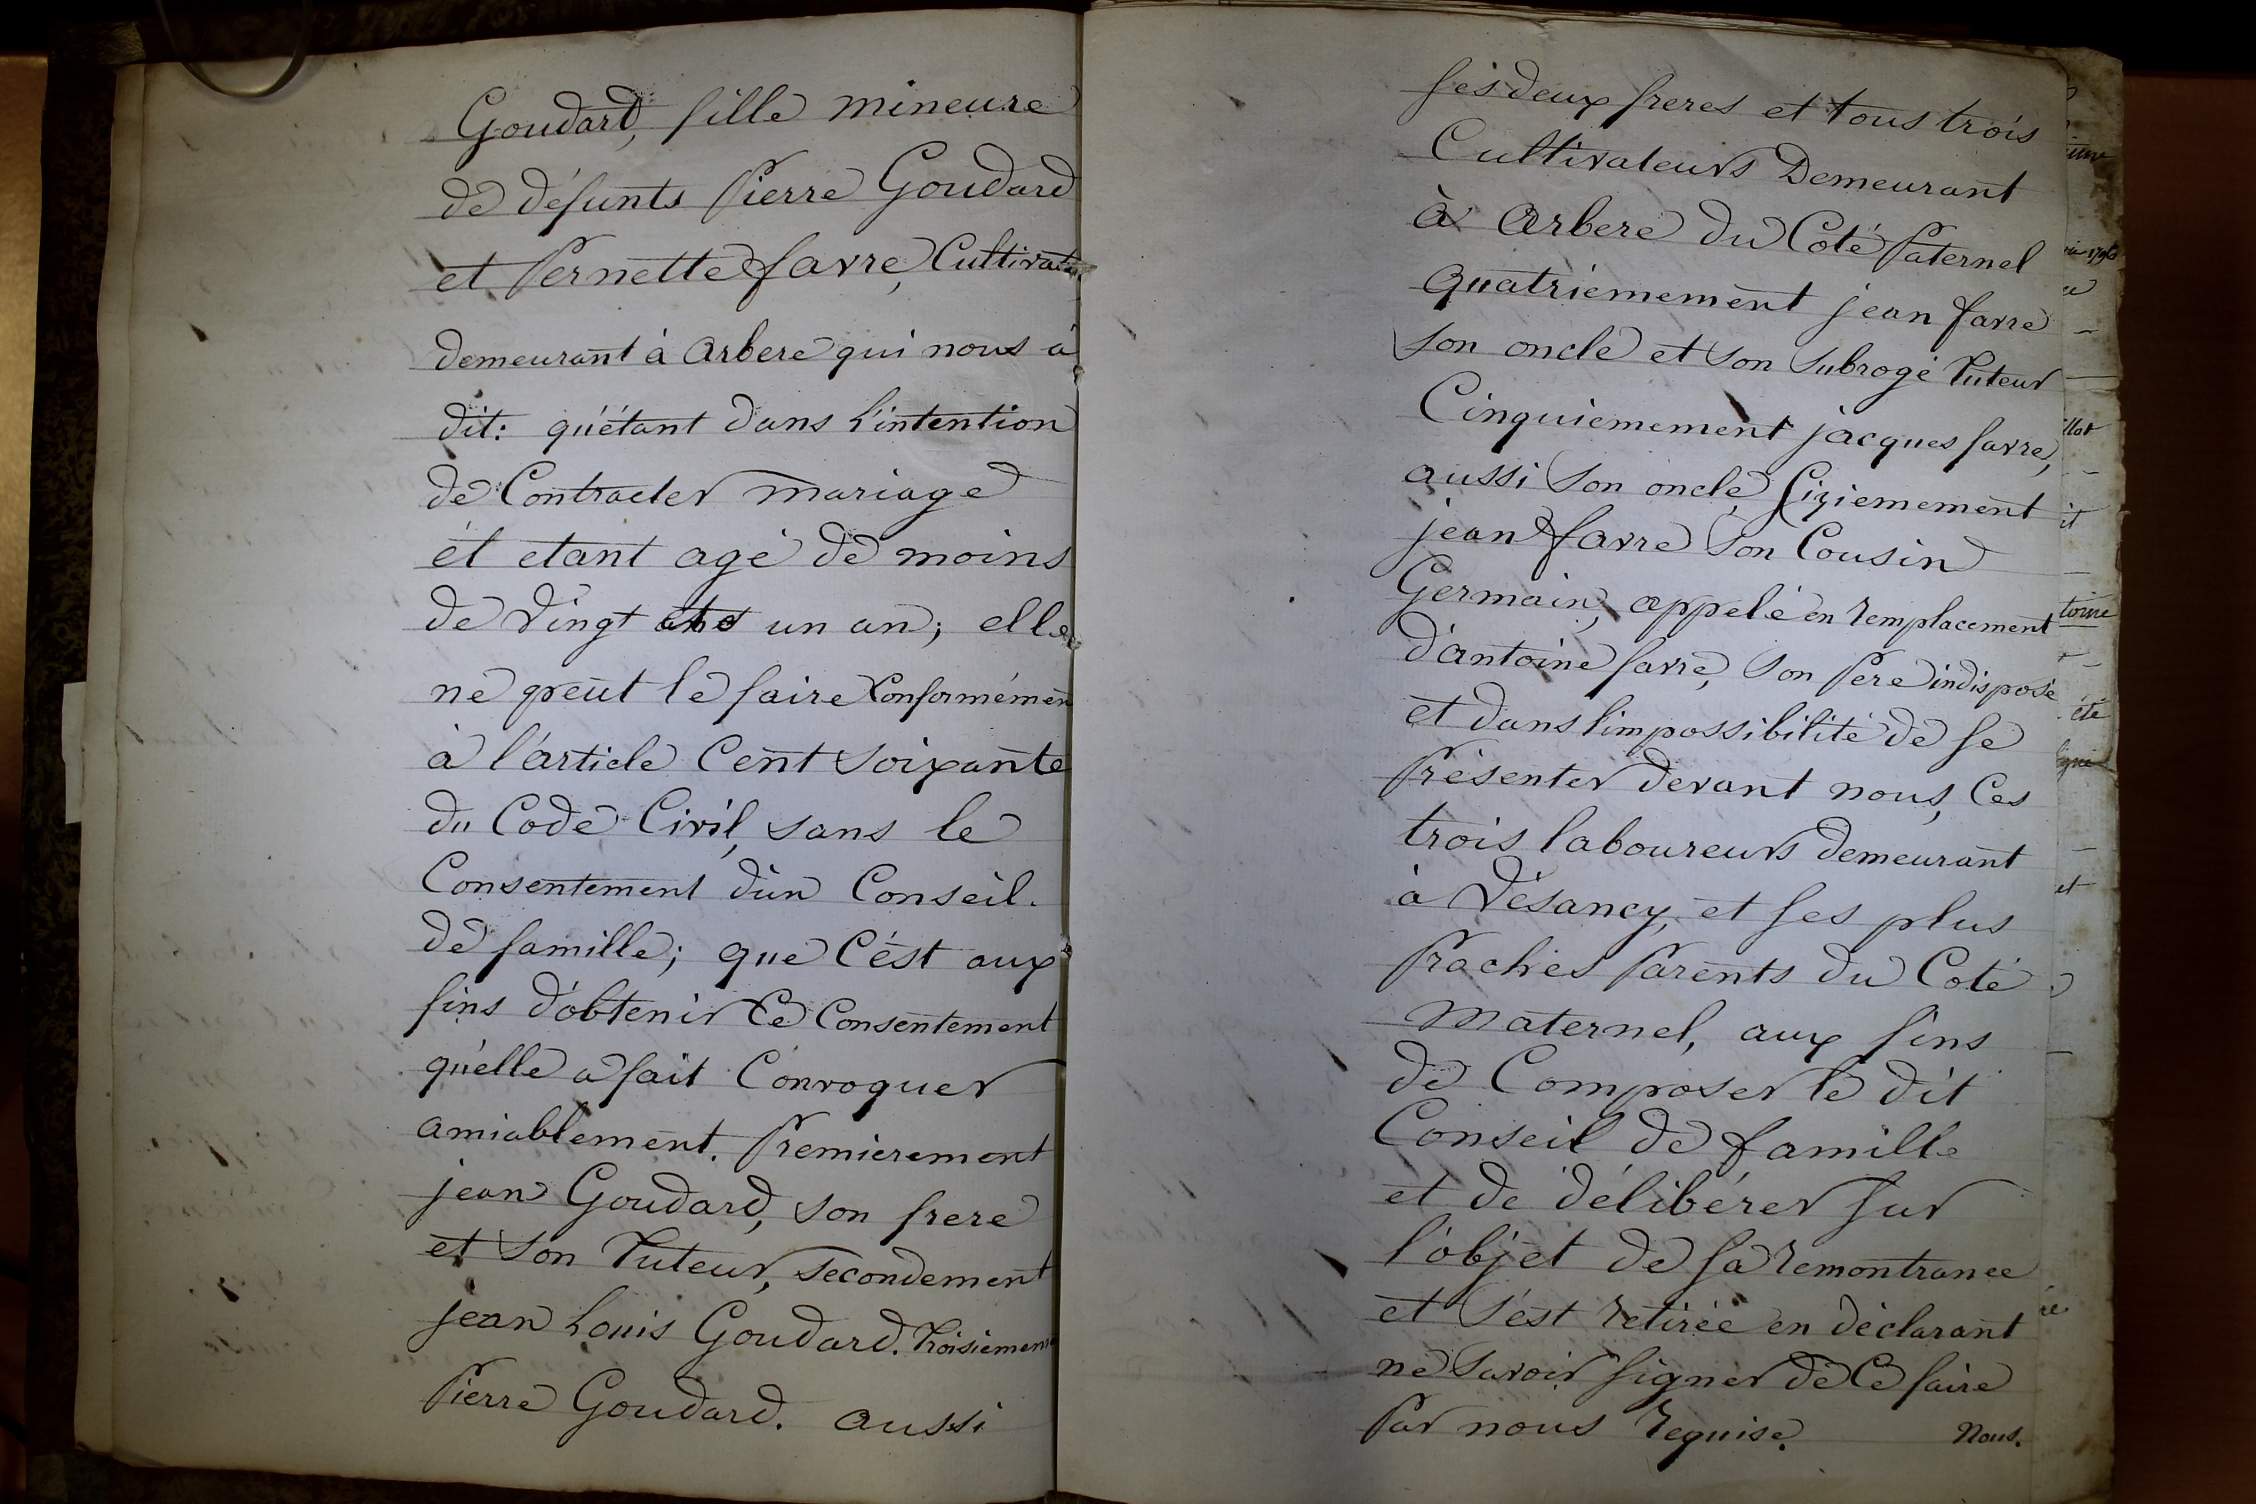 Goudard, fille mineure
de défunts Pierre Goudard
et Pernette favre, Cultivat
demeurant à Arbere qui nous à
dit: qu'étant dans l'intention
de Contracter mariage
ét etant agé de moins
de Vingt un an; elle
ne peut le faire Conformémen
à l'article Cent soixante
du Code Civil, sans le
Consentement d'un Conseil.
de famille; que C'ést aux
fins d'obtenir Ce Consentement
qu'elle a fait Convoquer
amiablement. Premierement
jean Goudard, son frere
et son Tuteur, secondement
jean Louis Goudard. Troisiemem
Pierre Goudard. aussi
ses deux freres et tous trois
Cultivateurs Demeurant
à Arbere du Coté Paternel
quatriemement jean favre
son oncle et son subrogé Tuteur
Cinquiemement jacques favre,
aussi son oncle, Siziemement
jean favre son Cousin
Germain, appelé en remplacement
d'antoine favre, son Pere indisposé
et dans l'impossibilité de se
Présenter devant nous, Ces
trois laboureurs demeurant
à Vésancy, et ses plus
Proches Parents du Coté
Maternel, aux fins
de Composer le dit
Conseil de famille
et de délibérer sur
l'objet de sa remontrance
et s'ést retirée en déclarant
ne savoir signer de Ce faire
Par nous requise. Nous.
llot
it
toine
été
et